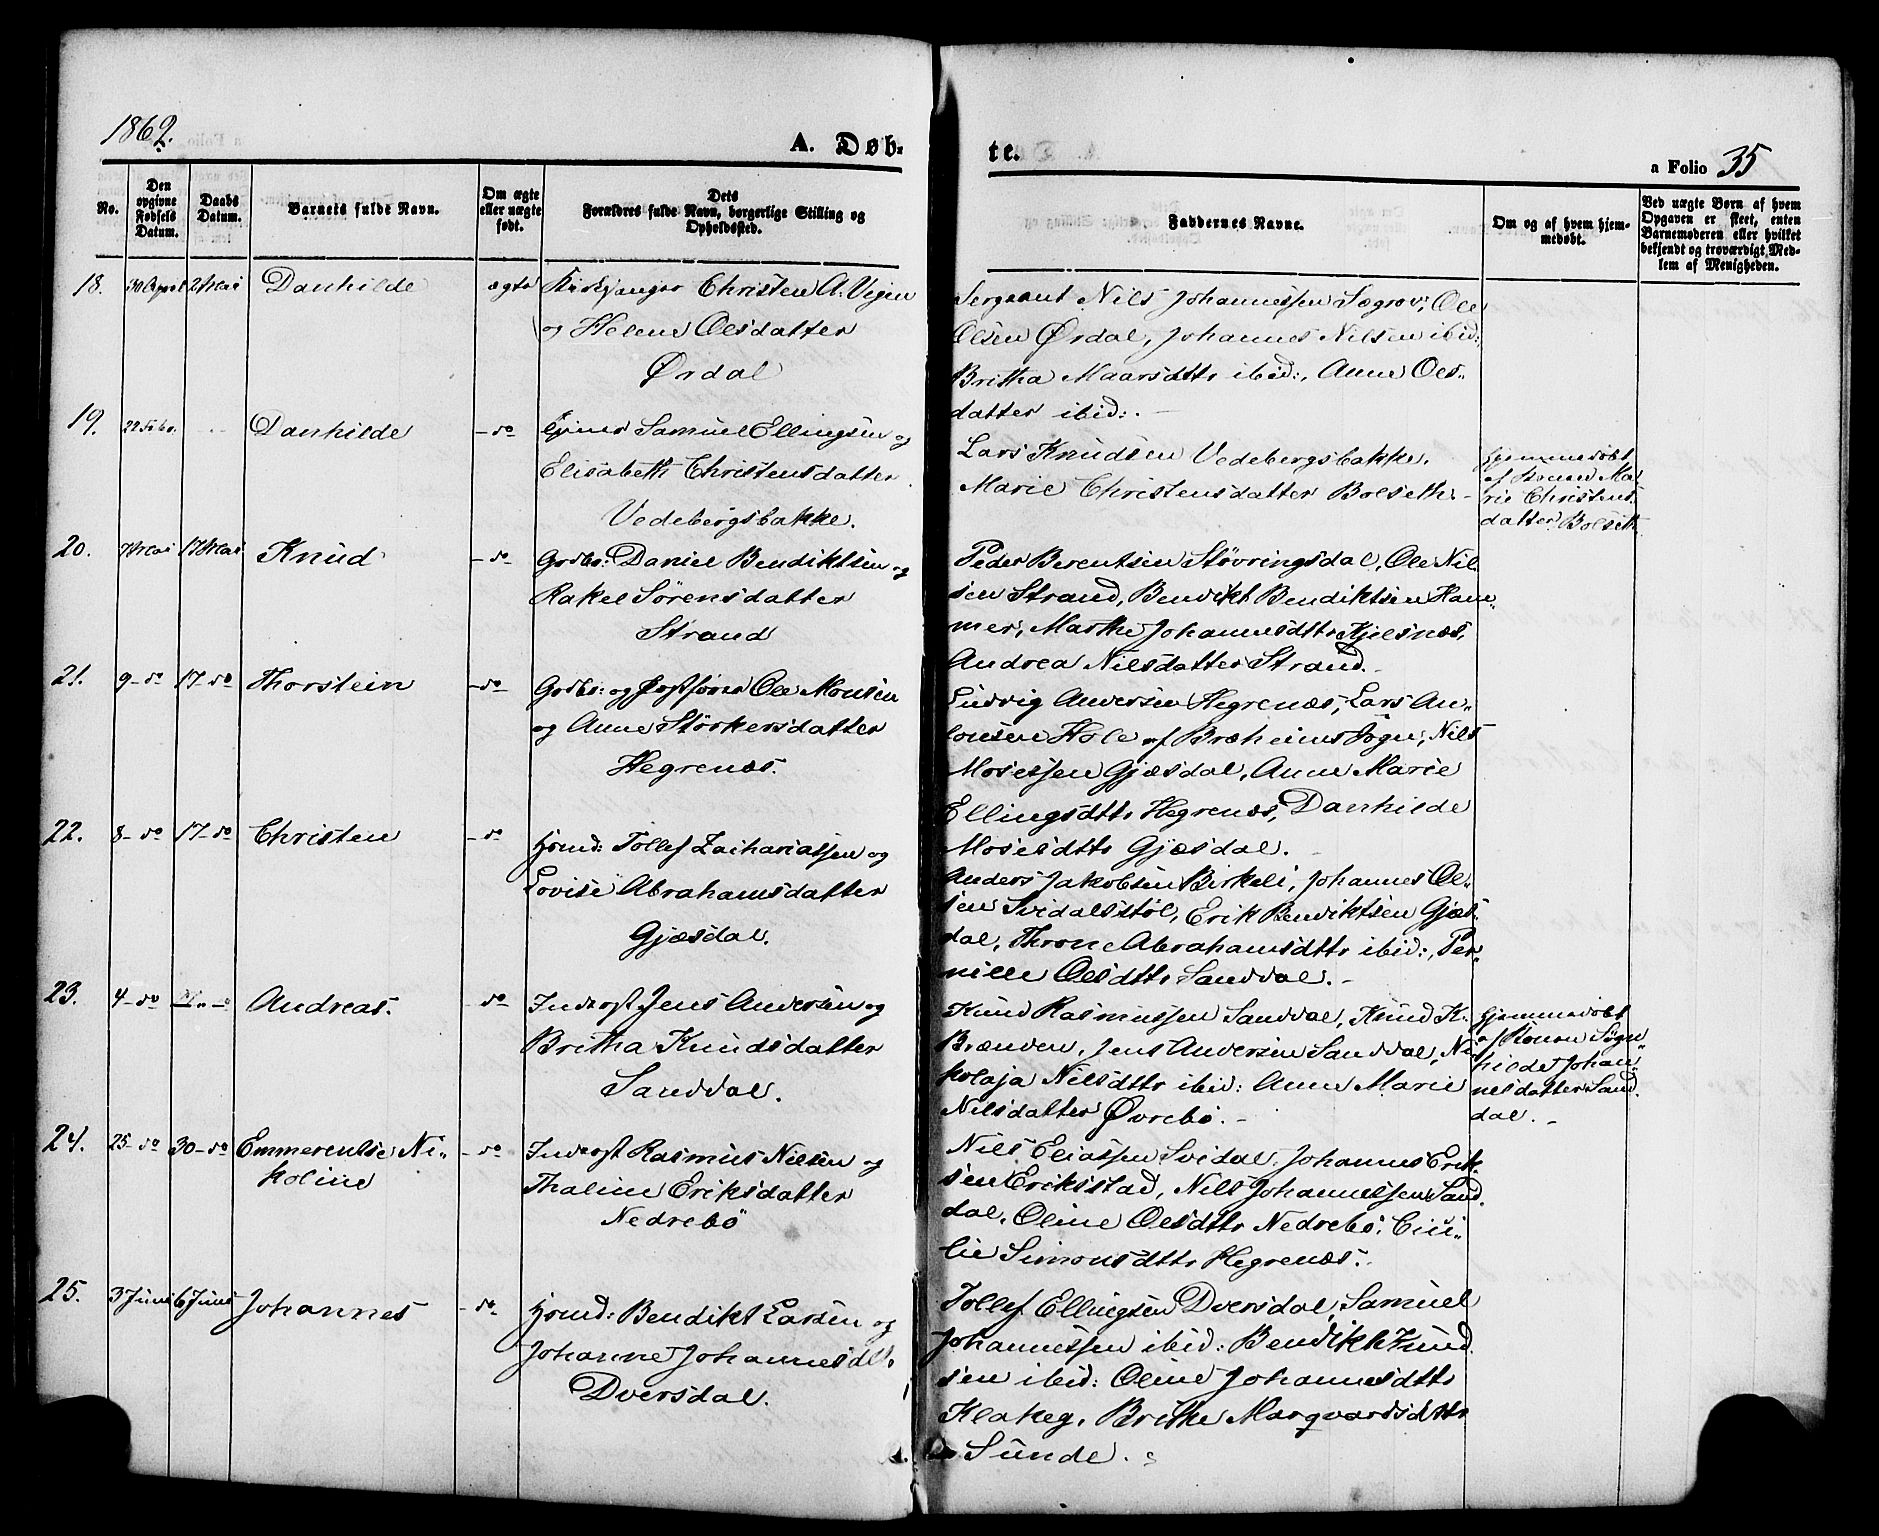 1862.
A. Døb-
te.
a Folio 35
No.
Den opgivne Fødsels Datum.
Daabs Datum.
Barnets fulde Navn.
Om ægte eller uægte født.
Dets Forældres fulde Navn, borgerlige Stilling og Opholdssted.
Faddernes Navne.
Om og af hvem hjem-
medøbt.
Ved uægte Børn af hvem
Opgaven er skeet, enten
Barnemoderen eller hvilket
bekjendt og troværdigt Med-
lem af Menigheden.
18. 30 April 2 Mai Danhilde ægte Kirkesanger Christen A. Vigen
og Helene Olsdatter
Ørdal
Sergeant Nils Johannessen Sægrov, Ole
Olsen Ørdal, Johannes Nilsen ibid:
Britha Maarsdttr ibid:, Anne Ols-
datter ibid:. -
19. 22 Febr. Danhilde - do Samuel Ellingsen og
Elisabeth Christensdatter
Vedebergsbakke.
Lars Knudsen Vedebergsbakke.
Marie Christensdatter Bolseth -
Hjemmedøbt
af Konen Ma-
rie Christens-
datter Bolseth
20. 7 Mai 17 Mai Knud - do Gdbr: Daniel Bendiktsen og
Rakel Sørensdatter
Strand
Peder Berentsen Støvringsdal, Ole Nil-
sen Strand, Bendikt Bendiktsen Ham-
mer, Marthe Johannesdttr Kjelsnæs,
Andrea Nilsdatter Strand. -
21. 9 - do 17 - do Thorstein - do Gdbr: og Ole Monsen
og Anne Størkersdatter
Hegrenæs.
Ludvig Andersen Hegrenæs, Lars An-
tonsen Hole af Bræheims Sogn, Nils
Mosessen Gjæsdal, Anne Marie
Ellingsdttr Hegrenæs, Danhilde
Mosesdttr Gjæsdal. -
22. 8 - do 17 - do Christen - do Hsmd: Tollef Zachariassen og
Lovise Abrahamsdatter
Gjæsdal.
Anders Jakobsen Birkeli, Johannes Ol-
sen Svidalsstøl, Erik Bendiktsen Gjæs-
dal, Throne Abrahamsdttr ibid:, Per-
nille Olsdttr Sanddal. -
23. 4 - do Andreas. - do Inderst Jens Andersen og
Britha Knudsdatter
Sanddal.
Knud Rasmussen Sanddal, Knud K.
Brænden, Jens Andersen Sanddal, Ni-
kolaja Nilsdttr ibid: Anne Marie
Nilsdatter Øvrebø. -
Hjemmedøbt
af Konen Søgn-
hilde Johan-
nesdatter Sand-
dal. -
24. 25 - do 30 - do Emmerentse Ni-
koline - do Inderst Rasmus Nilsen og
Thaline Eriksdatter
Nedrebø
Nils Eliassen Svidal, Johannes Erik-
sen Eriksstad, Nils Johannessen Sand-
dal, Oline Olsdttr Nedrebø, Cici-
lie Simonsdttr Hegrenæs. -
25. 3 Juni 6 Juni Johannes - do Hsmd: Bendikt Larsen og
Johanne Johannesdtr
Dversdal.
Tollef Ellingsen Dversdal, Samuel
Johannessen ibid: Bendikt Knud-
sen ibid: Oline Johannesdttr
Klakeg, Brithe Marqvardsdttr
Sunde.